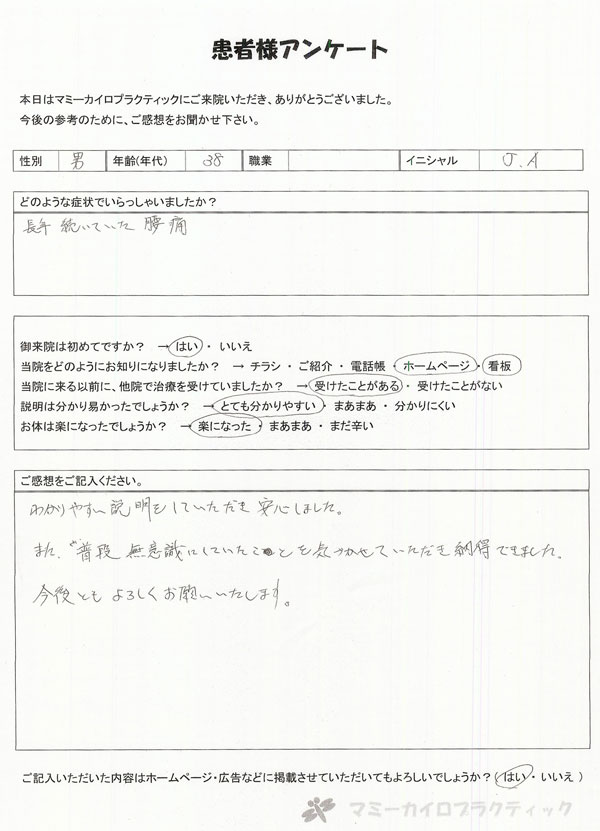 患者様アンケート
本日はマミーカイロプラクティックにご来院いただき、ありがとうございました。
今後の参考のために、ご感想をお聞かせ下さい。
性別 男 年齢(年代) 38 職業 イニシャル J.A
どのような症状でいらっしゃいましたか?
長年続いていた腰痛
御来院は初めてですか? →はい・いいえ
当院をどのようにお知りになりましたか? → チラシ・ご紹介・電話帳・ホームページ・看板
当院に来る以前に、他院で治療を受けていましたか? →受けたことがある・受けたことがない
説明は分かり易かったでしょうか? →とても分かりやすい・まあまあ・分かりにくい
お体は楽になったでしょうか? →楽になった・まあまあ・まだ辛い
ご感想をご記入ください。
わかりやすい説明をしていただき安心しました。
また、普段無意識にしていたことを気づかせていただき納得できました。
今後ともよろしくお願いいたします。
ご記入いただいた内容はホームページ・広告などに掲載させていただいてもよろしいでしょうか?(はい・いいえ)
マミーカイロプラクティック